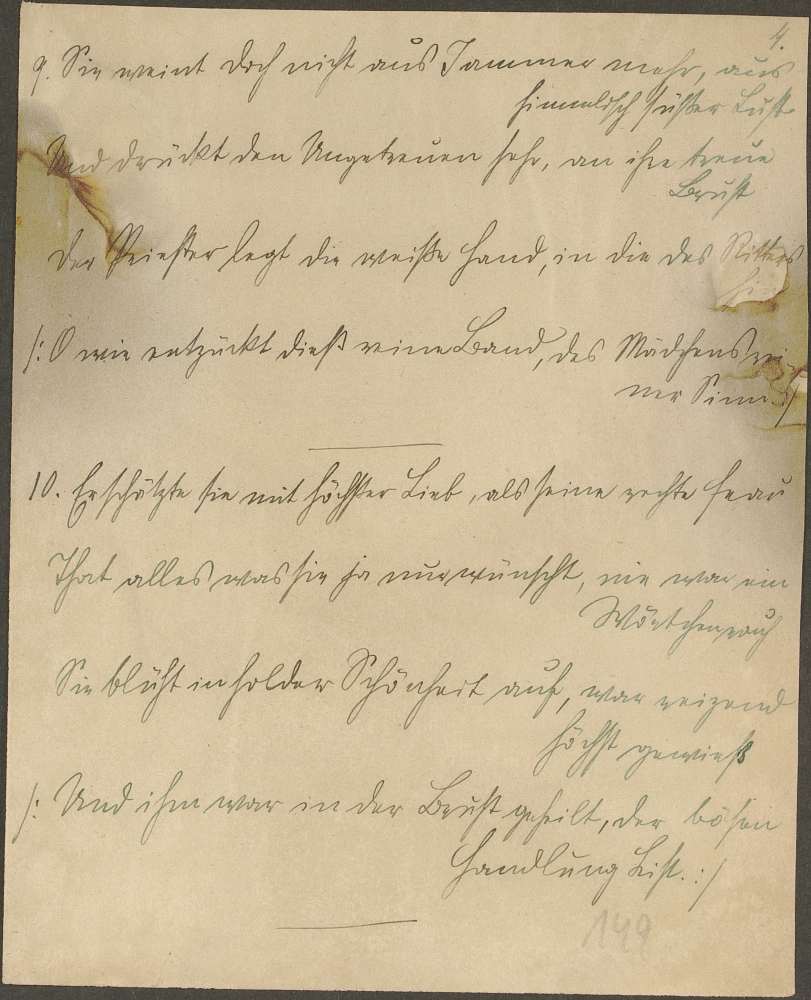 4.
9. Sie weint doch nicht aus Jammer mehr, aus
himmelisch süßer Lust
Und drückt den Ungetreuen sehr, an ihre treue
Brust
Der Priester legt die weiße Hand, in die des Ritters
hin
/: O wie entzückt dieß reine Band, des Mädchens rei-
ner Sinn :/
10. Er schätzte sie mit höchster Lieb, als seine rechte Frau
That alles was sie ja nur wünscht, nie war ein
Wörtchen rauh
Sie blüht in holder Schönheit auf, war reizend
höchst gewieß
/: Und ihm war in der Brust geheilt, der bösen
Handlung List. :/
149